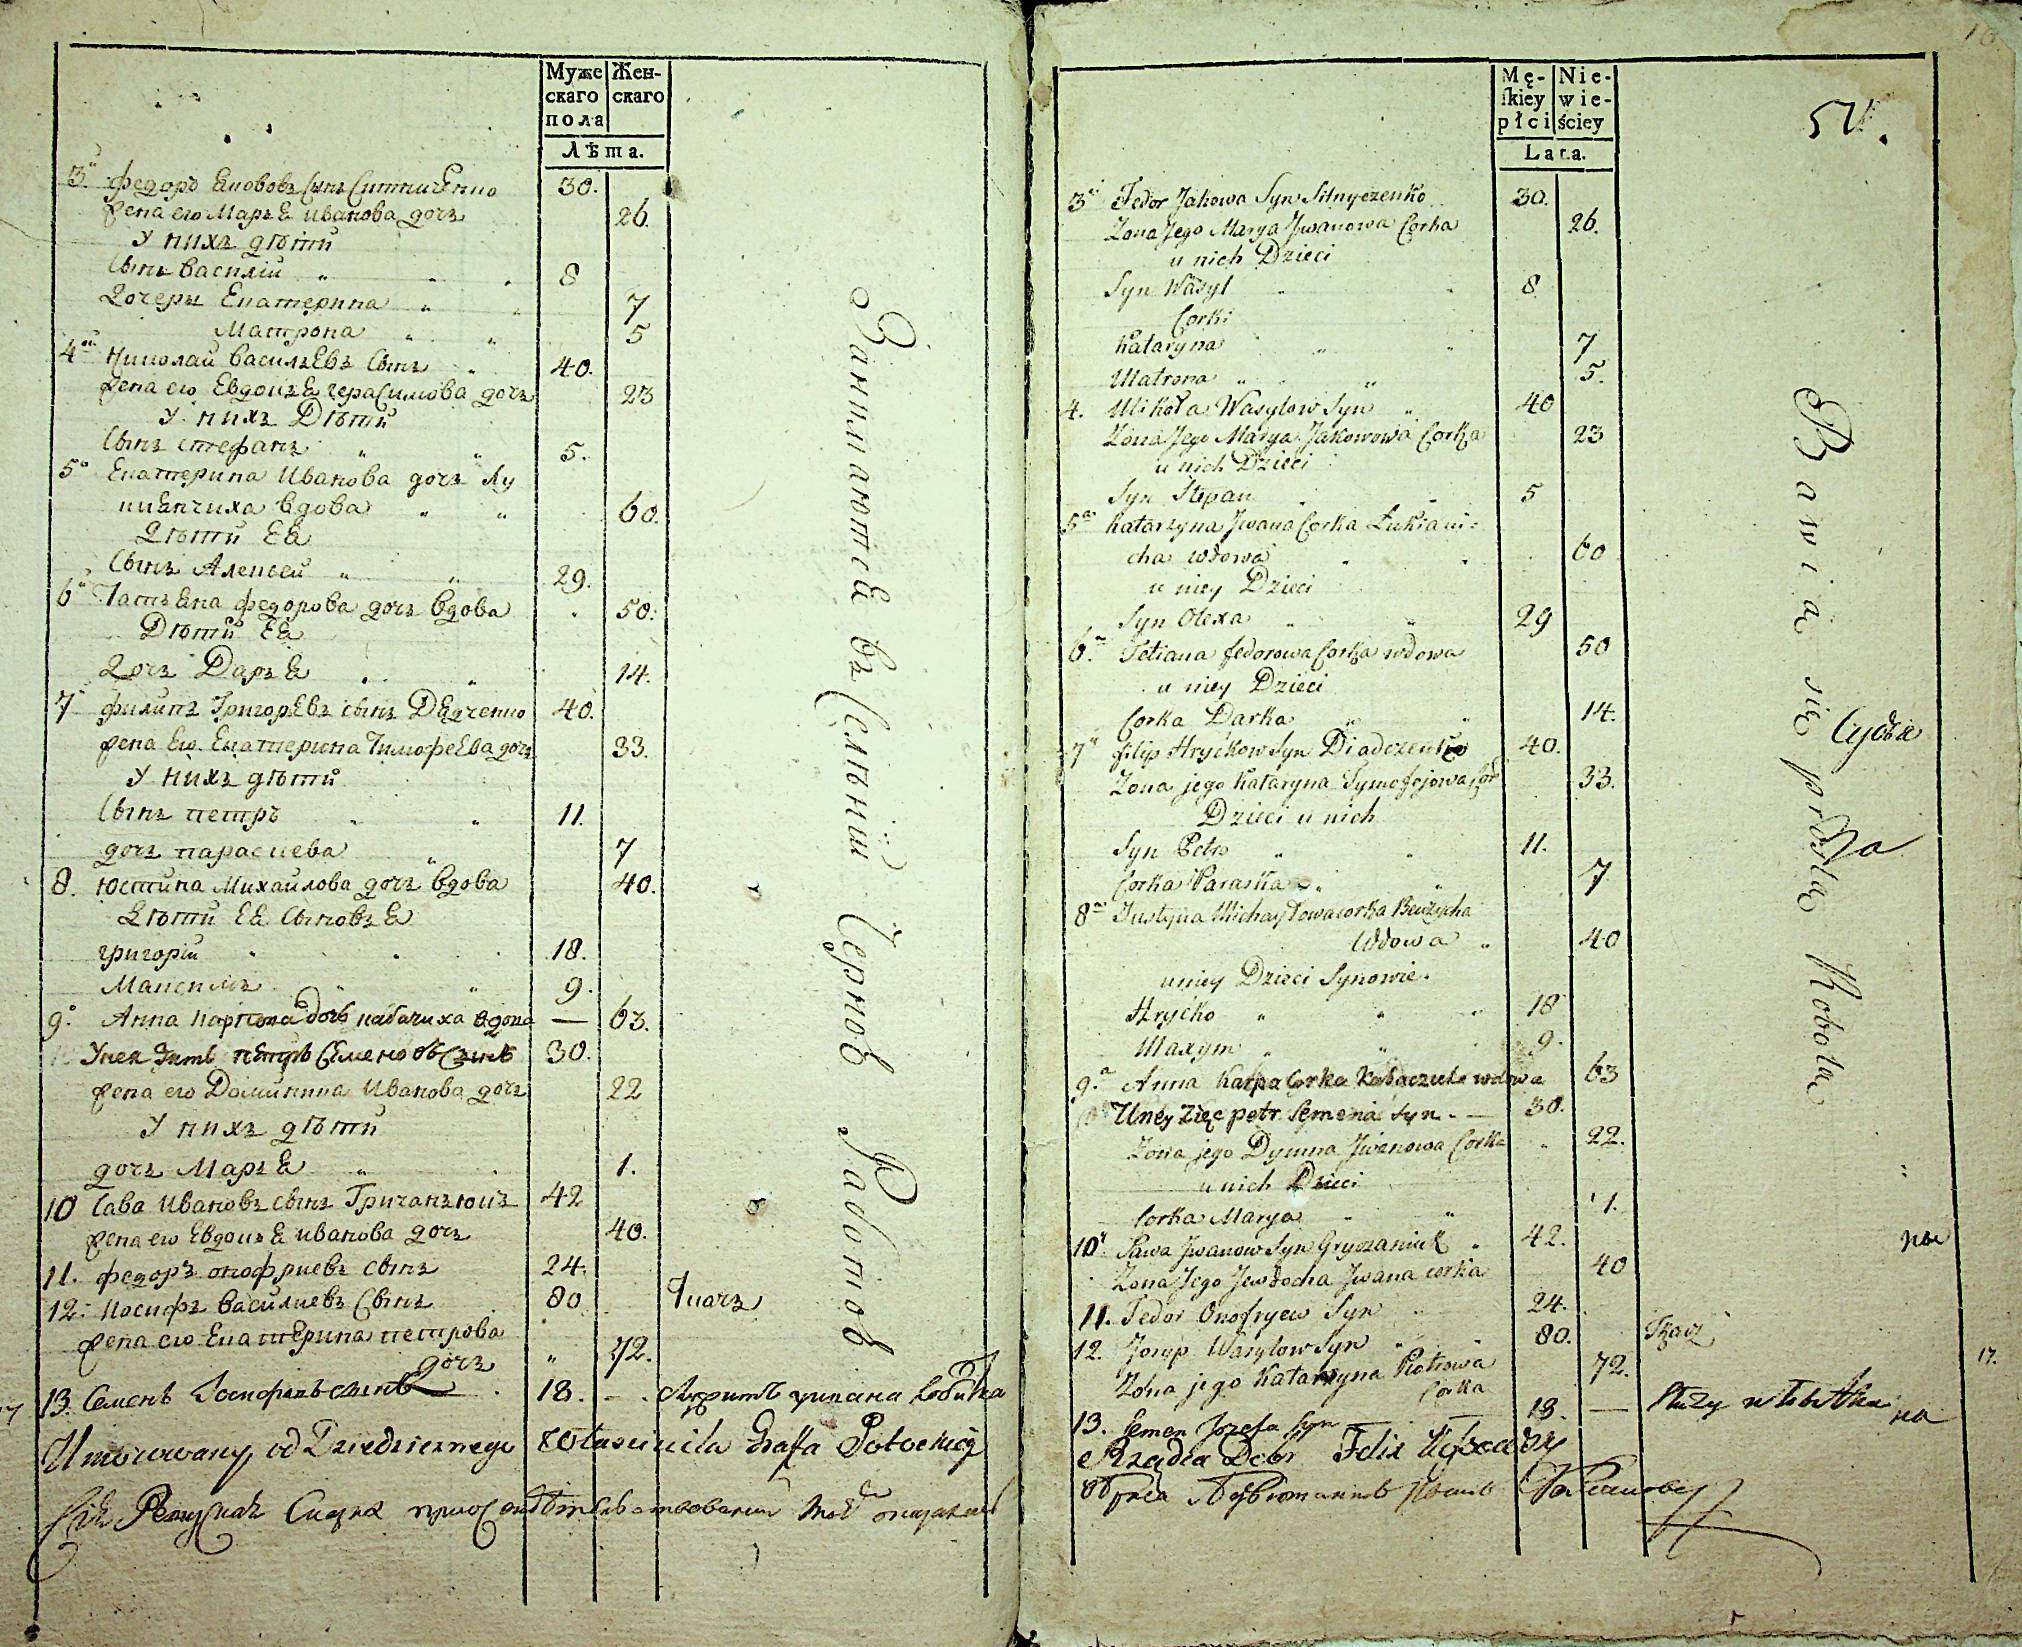 Муже
скаго
пола
Жен-
скаго
Лѣта.
3й Федоръ Якововъ сынъ Ситниченко 30.
жена его Марья иванова дочь 26.
У нихъ дѣти
Сынъ Василий 8
Дочеры Екатерина 7
Матрона 5
4й Николай васильевъ сынъ 40.
жена его Евдокья герасимова дочь 23
У нихъ Дѣти
Сынъ стефанъ 5.
5я Екатерина Иванова дочь Лу
киянчиха вдова 60.
Дѣти ея
Сынъ Алексей 29.
6я Татьяна федорова дочь вдова 50.
Дѣти ея
Дочь Дарья 14.
7й филипъ Григорьевъ сынъ Дядченко 40.
жена Его Екатерина Тимофеева дочь 33.
У нихъ дѣти
Сынъ петръ 11.
дочь параскева 7
8. Юстина Михаилова дочь вдова 40.
Дѣти ея Сыновья
григорий 18.
Максимъ 9.
9я Анна карпова дочь кабачиха вдова — 63.
У нея зять петръ Семеновъ сынъ 30.
жена его Доминика Иванова дочь 22
У нихъ дѣти
дочь Марья 1.
10 Сава Ивановъ сынъ Гричанюкъ 42
жена его Евдокья иванова дочь 40.
11. федоръ онофриевъ сынъ 24.
12. Иосифъ василиевъ Сынъ 80 Ткачъ
жена его Екатерина петрова
дочь 72.
13. Семенъ Иосифовъ сынъ 18. —
Занимаются въ Селѣнии Черной Работой
od Dziedzicznego Grafa Potockiego
Mę-
skiey
płci
Nie-
wie-
ściey
Lata.
54.
3й Fedor Jakowa Syn Sitnyczenko 30.
Zona Jego Marya Jwanowa Corka 26.
u nich Dzieci
Syn Wasyl 8
Corki
Kataryna 7
Matrona 5.
4. Mikoła Wasylow Syn 40
Zona Jego Marya Jakowowa Corka 23
u nich Dzieci
Syn Stepan 5
5a Katarzyna Jwana Corka Łukiani=
cha wdowa 60
u niey Dzieci
Syn Olexa 29
6a Tetiana fedorowa Corka wdowa 50
u niey Dzieci
Corka Darka 14.
7й filip Hryćkow Syn Diadczenko 40.
Zona jego Kataryna Tymofejowa Cor 33.
Dzieci u nich
Syn Petro 11.
Corka Paraska 7
8a Justyna Michayłowa corka
Wdowa 40
u niey Dzieci Synowie.
Hryćko 18
Maxym 9.
9a Anna Karpa Corka Kabaczicha wdowa 63
U niey Zięc petr Semena syn — 30.
Zona jego Dymna Jwanowa Corka 22.
u nich Dzieci
Corka Marya 1.
10й Sawa Jwanow Syn Gryczaniuk 42.
Zona Jego Jewdocha Jwana corka 40
11. Fedor Onofryew Syn 24.
12. Josyp Wasylow Syn 80. Tkacz
Zona jego Kataryna Piotrowa 72.
Corka
13. Semen Jozefa Syn 18. — Służy
17.
Bawią się prostą Robotą
Rządca Dobr Felix